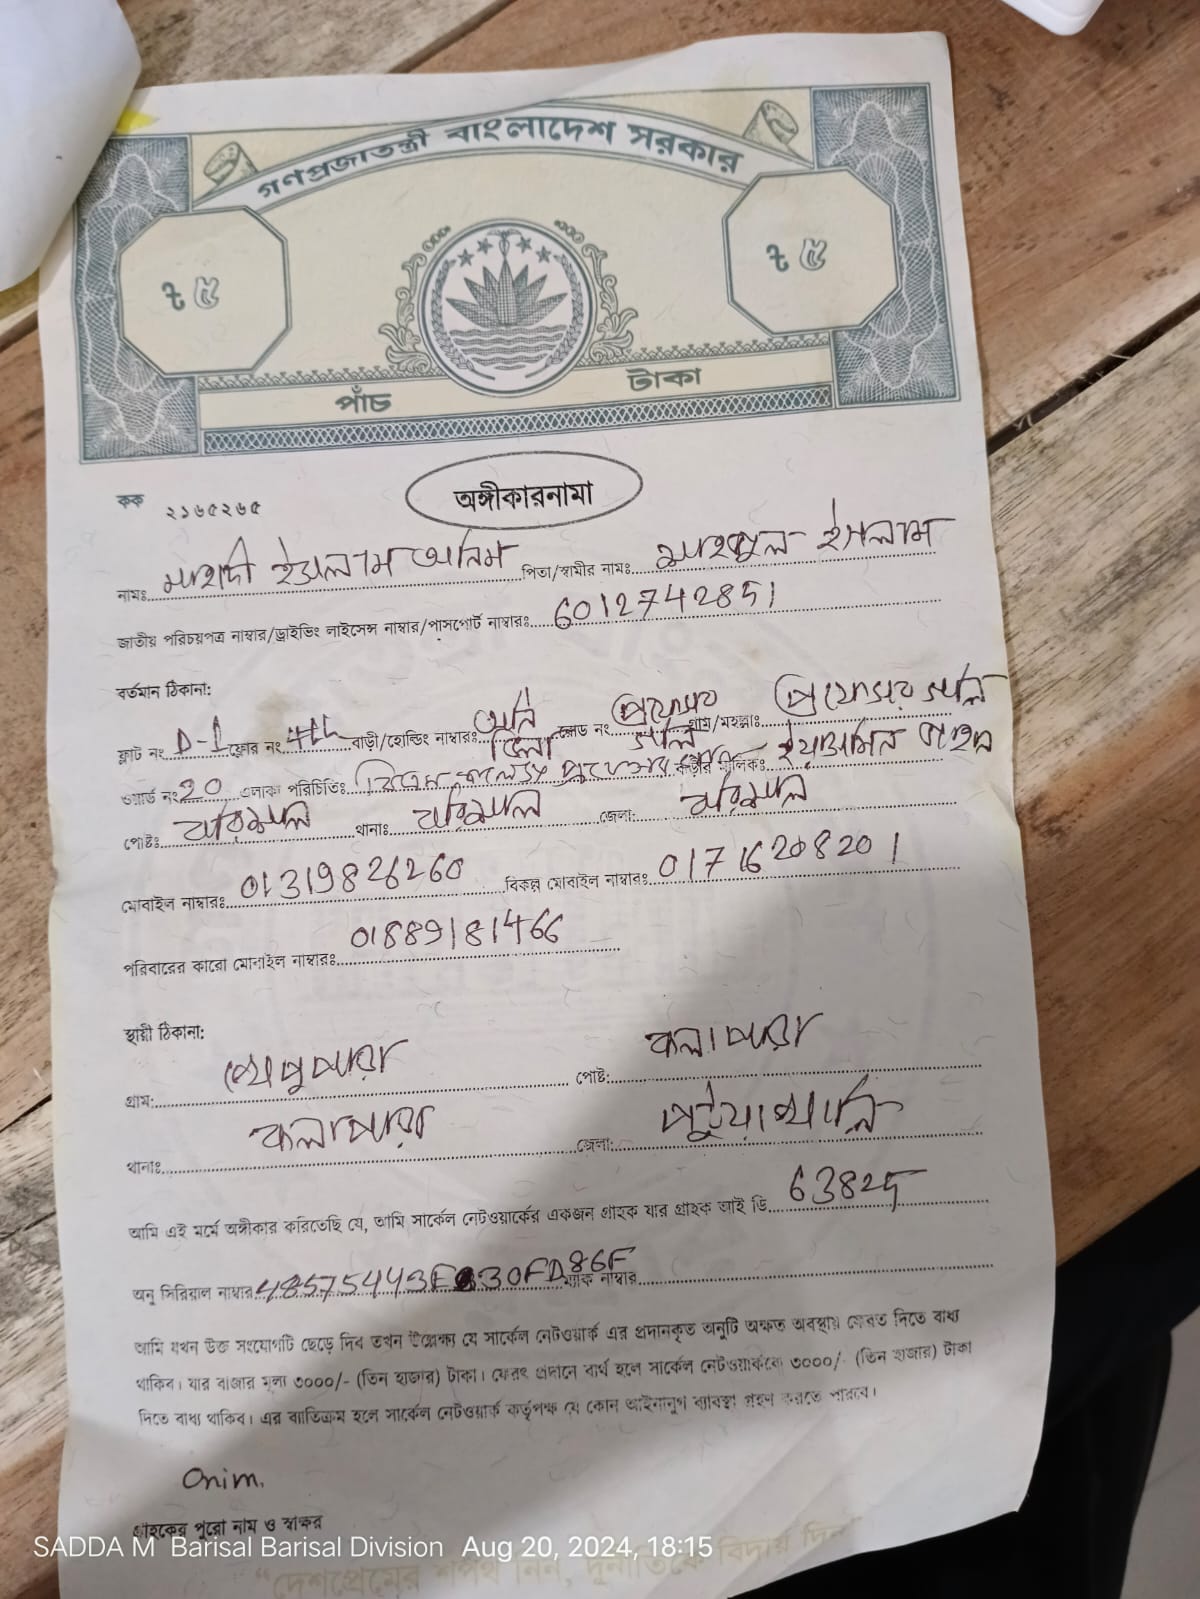 গণপ্রজাতন্ত্রী বাংলাদেশ সরকার
৳ ৫ ৳ ৫
পাঁচ টাকা
কক ২১৬৫২৬৫
অঙ্গীকারনামা
নামঃ মাহাদী ইসলাম অনিম পিতা/স্বামীর নামঃ ইসলাম
জাতীয় পরিচয়পত্র নাম্বার/ড্রাইভিং লাইসেন্স নাম্বার/পাসপোর্ট নাম্বারঃ 6012742851
বর্তমান ঠিকানা:
ফ্লাট নং D-1 ফ্লোর নং 4th বাড়ী/হোল্ডিং নাম্বারঃ অনি ভিলা রোড নং প্রফেসর গলি গ্রাম/মহল্লাঃ প্রফেসর গলি
ওয়ার্ড নং 20 এলাকা পরিচিতিঃ বিএম কলেজ প্রফেসর গলি বাড়ীর মালিকঃ ইয়াসমিন জাহান
পোষ্টঃ বরিশাল থানাঃ বরিশাল জেলা: বরিশাল
মোবাইল নাম্বারঃ 01319826260 বিকল্প মোবাইল নাম্বারঃ 01716208201
পরিবারের কারো মোবাইল নাম্বারঃ 01889181466
স্থায়ী ঠিকানা:
গ্রাম: খেপুপারা পোষ্ট: কলাপারা
থানাঃ কলাপারা জেলা: পটুয়াখালি
আমি এই মর্মে অঙ্গীকার করিতেছি যে, আমি সার্কেল নেটওয়ার্কের একজন গ্রাহক যার গ্রাহক আই ডি 63825
অনু সিরিয়াল নাম্বার 48575443E 30FDB86F ম্যাক নাম্বার
আমি যখন উক্ত সংযোগটি ছেড়ে দিব তখন উল্লেক্ষ্য যে সার্কেল নেটওয়ার্ক এর প্রদানকৃত অনুটি অক্ষত অবস্থায় ফেরত দিতে বাধ্য
থাকিব। যার বাজার মূল্য ৩০০০/- (তিন হাজার) টাকা। ফেরৎ প্রদানে ব্যর্থ হলে সার্কেল নেটওয়ার্ককে ৩০০০/- (তিন হাজার) টাকা
দিতে বাধ্য থাকিব। এর ব্যতিক্রম হলে সার্কেল নেটওয়ার্ক কর্তৃপক্ষ যে কোন আইনানুগ ব্যাবস্থা গ্রহণ করতে পারবে।
Onim.
গ্রাহকের পুরো নাম ও স্বাক্ষর
SADDA M Barisal Barisal Division Aug 20, 2024, 18:15
"দেশপ্রেমের শপথ নিন, দুর্নীতিকে বিদায় দিন"